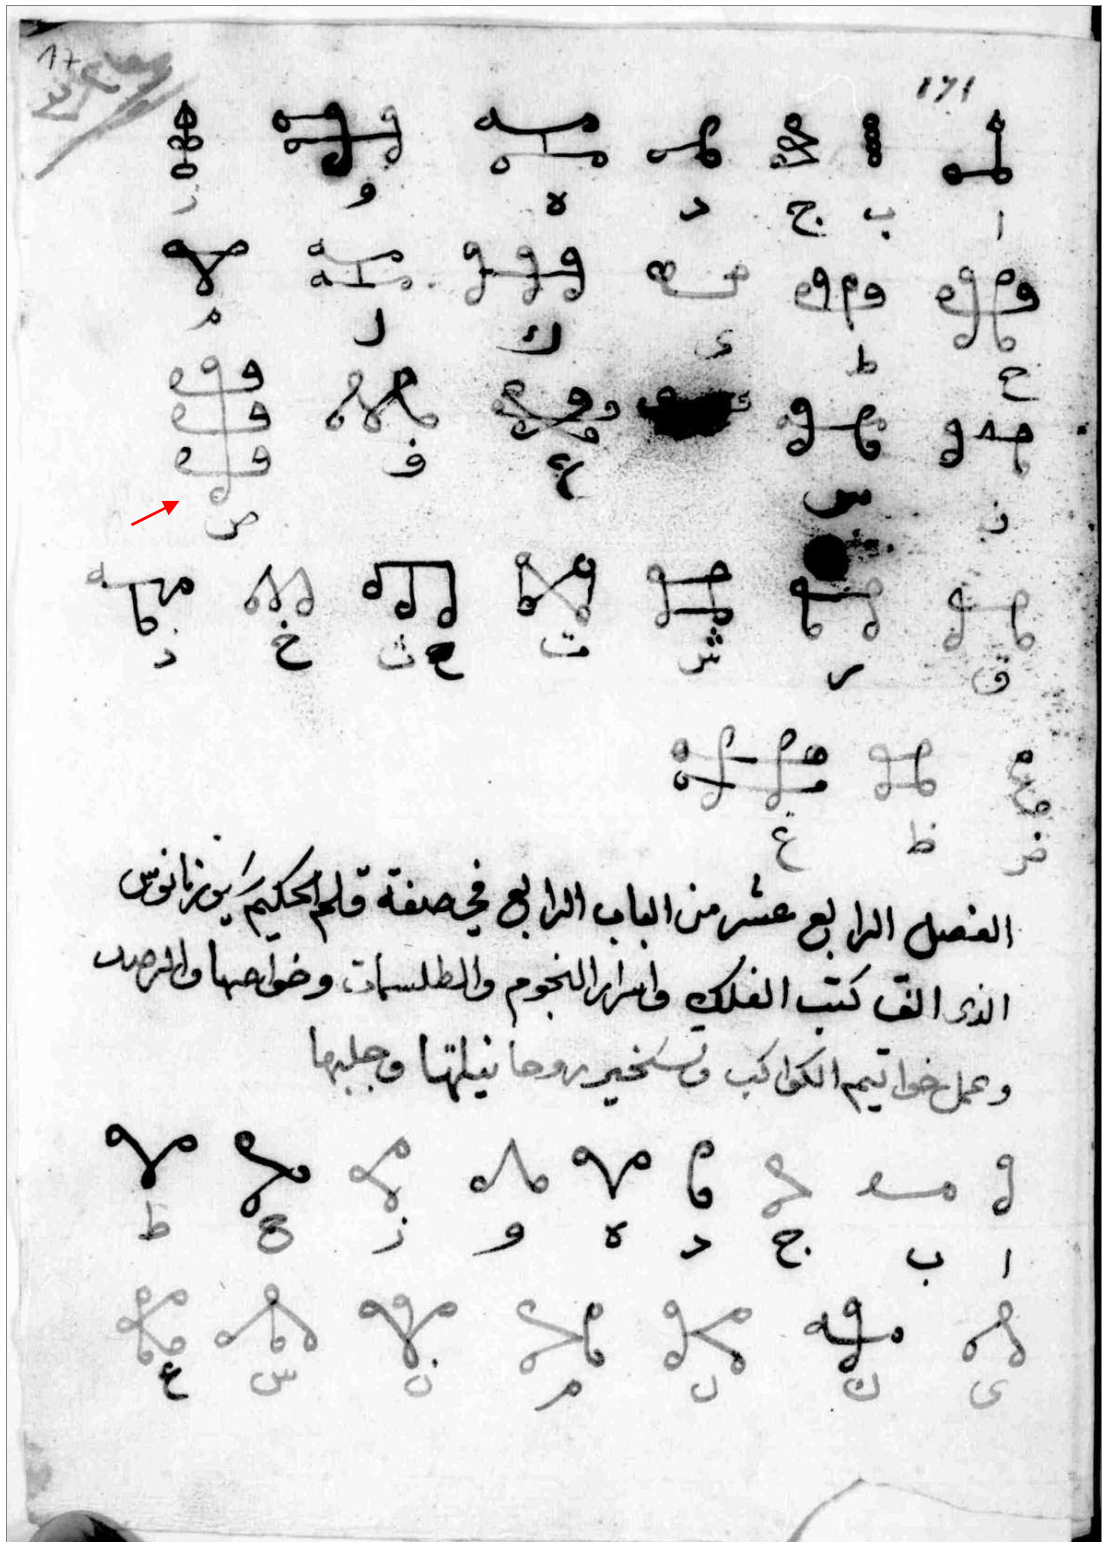 ١٧١
ا ب ج د ه و ز
ح ط ى ك ل م
ن س ع ف ص
ق ر ش ت ث خ ذ
ض ظ غ
الفصل الرابع عشر من الباب الرابع في صفة قلم الحكيم
الذى الف كتب الفلك واسرار النجوم والطلسمات وخواصها والرصد
وعمل خواتيم الكواكب وتسخير روحانيلتها وجلبها
ا ب ج د ه و ز ح ط
ى ك ل م ن س ع